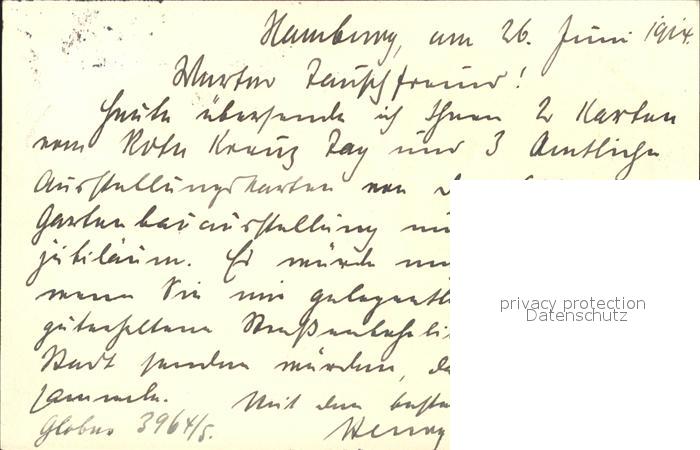 Hamburg, am 26. Juni 1914
Werter Tauschfreund!
Heute übersende ich Ihnen 2 Karten
vom Roten Kreuz Tag und 3 Amtliche
Ausstellungskarten von
Gartenbauausstellung
jubiläum. Es würde
wenn Sie mir
guterhaltene
Stadt senden würden,
sammele. Mit den
Globus 3964/5. Henry
privacy protection
Datenschutz